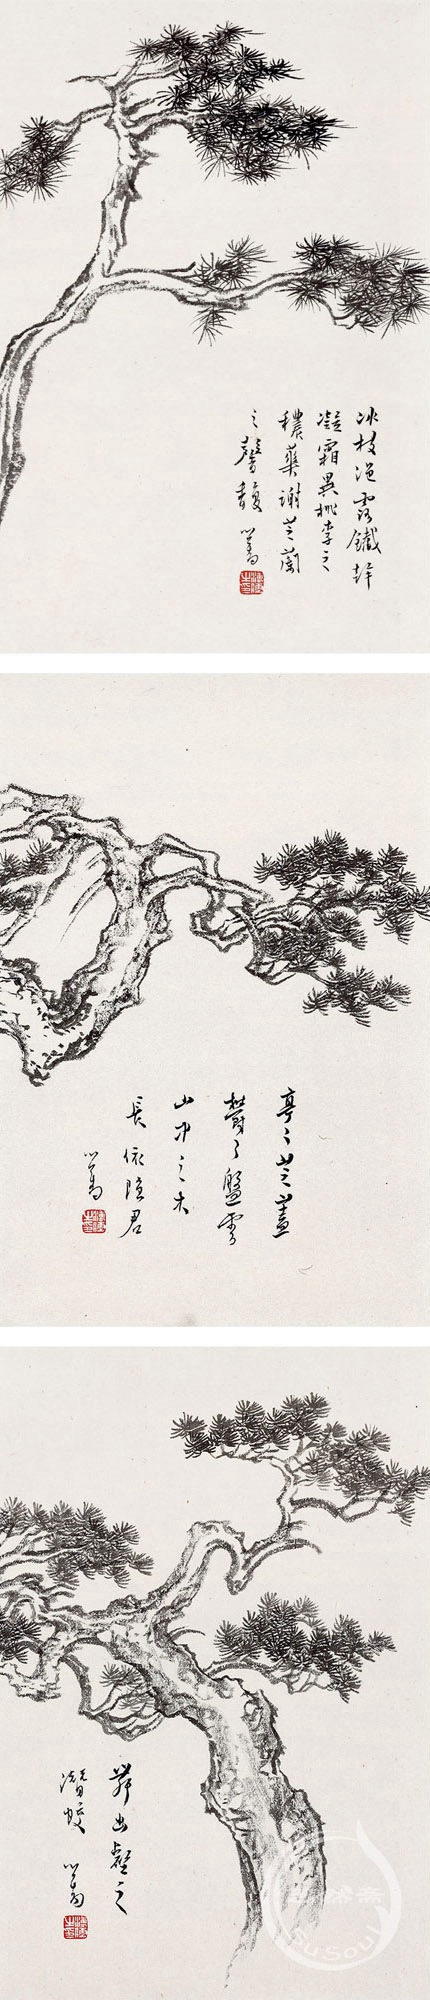 冰枝浥露鐵幹
凝霜異桃李之
穠華謝芝蘭
之馨馥 心畬
亭〻芝蓋
鬱〻盤雲
山中之木
長依隱君
心畬
舞幽壑之
潛蛟 心畬
SuSoul